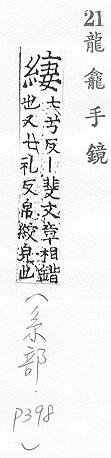 21
龍龕手鏡
緀
七兮反丨斐文章相錯
也又七礼反帛紋皃也
(糸部.
p398)